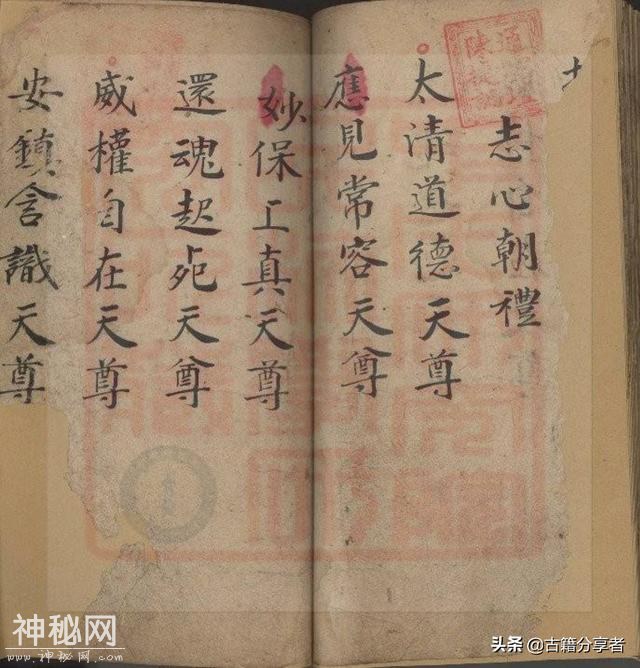 志心朝禮
太清道德天尊
應見常容天尊
妙保工真天尊
還魂起死天尊
威權自在天尊
安鎮含識天尊
神秘网
www.神秘网.com
头条 @古籍分享者